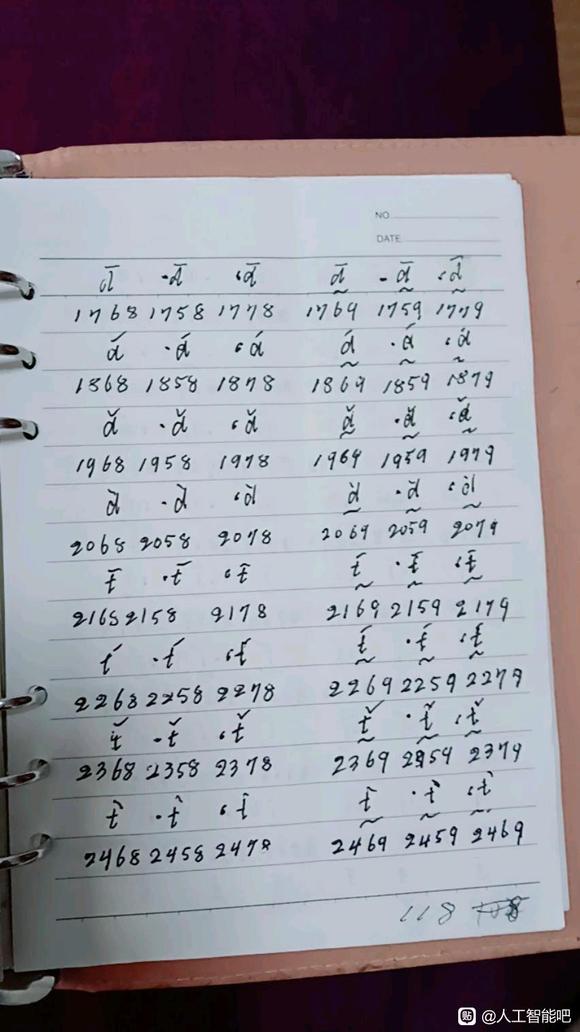 NO
DATE
d̄ ·d̄ ‘d̄ d̰̄ ·d̰̄ ‘d̰̄
1768 1758 1778 1769 1759 1779
d́ ·d́ ‘d́ d̰́ ·d̰́ ‘d̰́
1868 1858 1878 1869 1859 1879
ď ·ď ‘ď ď̰ ·ď̰ ‘ď̰
1968 1958 1978 1969 1959 1979
d̀ ·d̀ ‘d̀ d̰̀ ·d̰̀ ‘d̰̀
2068 2058 2078 2069 2059 2079
t̄ ·t̄ ‘t̄ t̰̄ ·t̰̄ ‘t̰̄
2168 2158 2178 2169 2159 2179
t́ ·t́ ‘t́ t̰́ ·t̰́ ‘t̰́
2268 2258 2278 2269 2259 2279
ť ·ť ‘ť ť̰ ·ť̰ ‘ť̰
2368 2358 2378 2369 2359 2379
t̀ ·t̀ ‘t̀ t̰̀ ·t̰̀ ‘t̰̀
2468 2458 2478 2469 2459 2469
118
贴 @人工智能吧